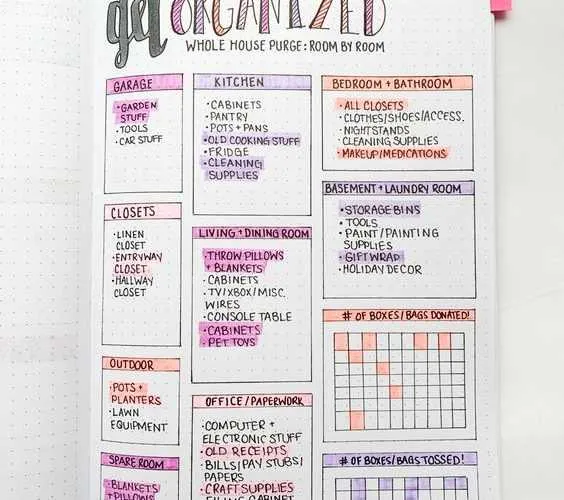 get ORGANIZED
WHOLE HOUSE PURGE: ROOM BY ROOM
GARAGE
• GARDEN
STUFF
• TOOLS
• CAR STUFF
CLOSETS
• LINEN
CLOSET
• ENTRYWAY
CLOSET
• HALLWAY
CLOSET
OUTDOOR
• POTS +
PLANTERS
• LAWN
EQUIPMENT
SPARE ROOM
• BLANKETS/
PILLOWS
KITCHEN
• CABINETS
• PANTRY
• POTS + PANS
• OLD COOKING STUFF
• FRIDGE
• CLEANING
SUPPLIES
LIVING + DINING ROOM
• THROW PILLOWS
+ BLANKETS
• CABINETS
• TV/XBOX/MISC.
WIRES
• CONSOLE TABLE
• CABINETS
• PET TOYS
OFFICE / PAPERWORK
• COMPUTER +
ELECTRONIC STUFF
• OLD RECEIPTS
• BILLS/PAY STUBS/
PAPERS
• CRAFT SUPPLIES
• FILING CABINET
BEDROOM + BATHROOM
• ALL CLOSETS
• CLOTHES/SHOES/ACCESS.
• NIGHTSTANDS
• CLEANING SUPPLIES
• MAKEUP/MEDICATIONS
BASEMENT + LAUNDRY ROOM
• STORAGE BINS
• TOOLS
• PAINT/PAINTING
SUPPLIES
• GIFTWRAP
• HOLIDAY DECOR
# OF BOXES/BAGS DONATED!
# OF BOXES/BAGS TOSSED!